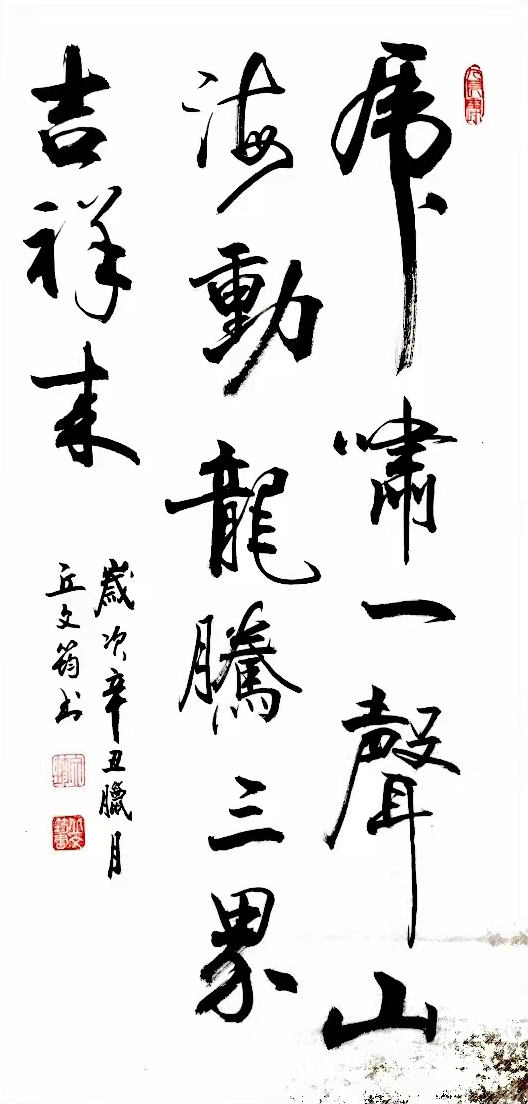 虎啸一聲山
海動龍騰三界
吉祥来
歲次辛丑臘月
丘文筠书